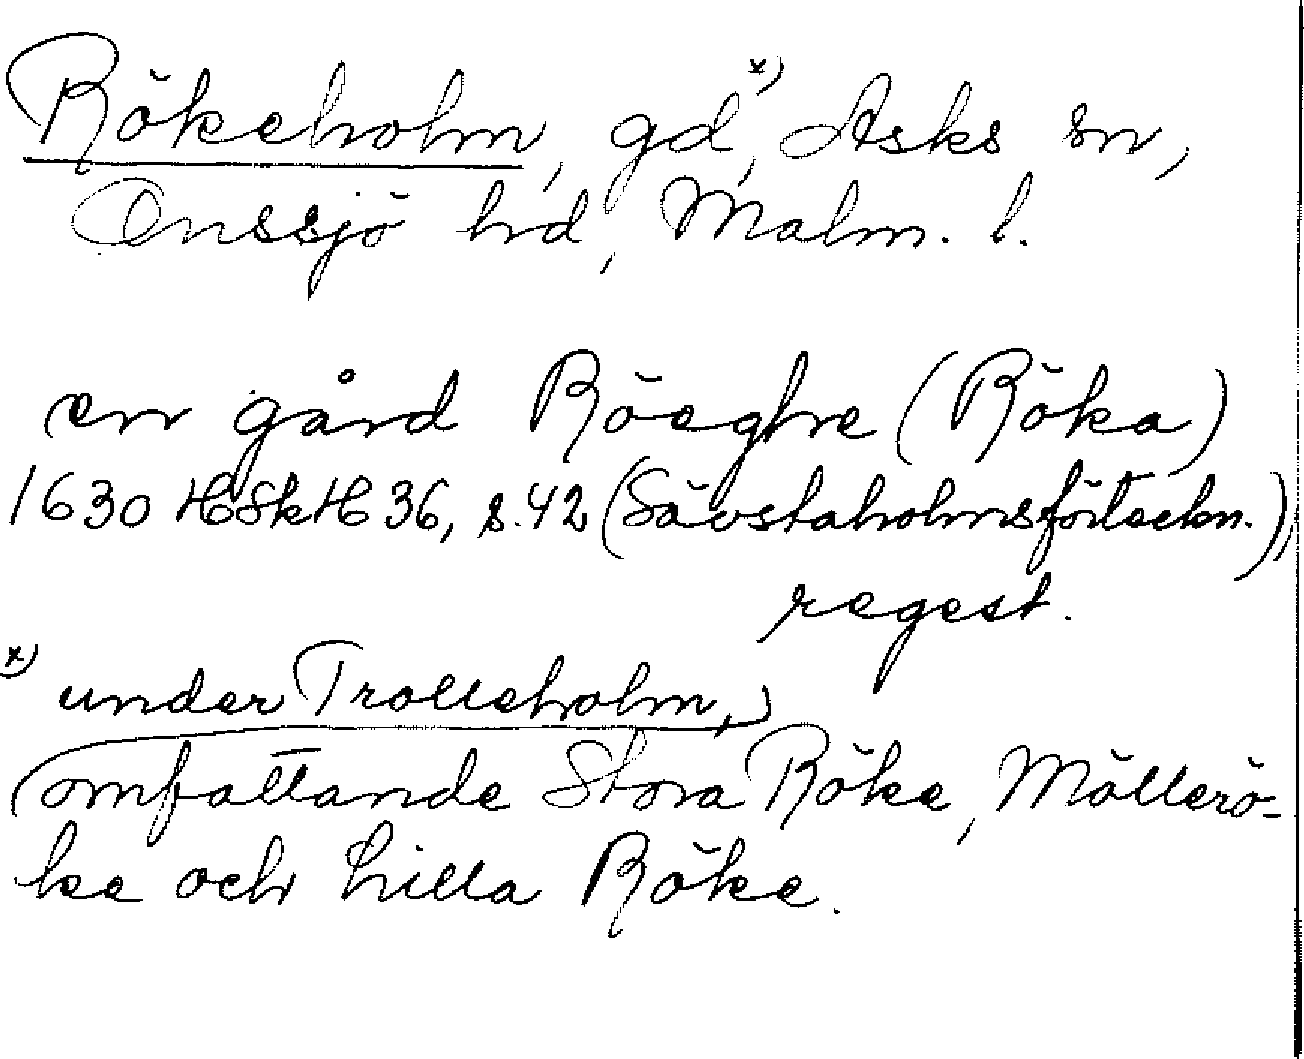 Rökeholm, gd, x) Asks sn,
Onssjö hd, Malm. l.
en gård Röeghe (Röka)
1630 HSkH 36, s. 42 (Sävstaholmsförteckn.),
regest.
x) under Trolleholm,
omfattande Stora Röke, Möllerö-
ke och Lilla Röke.